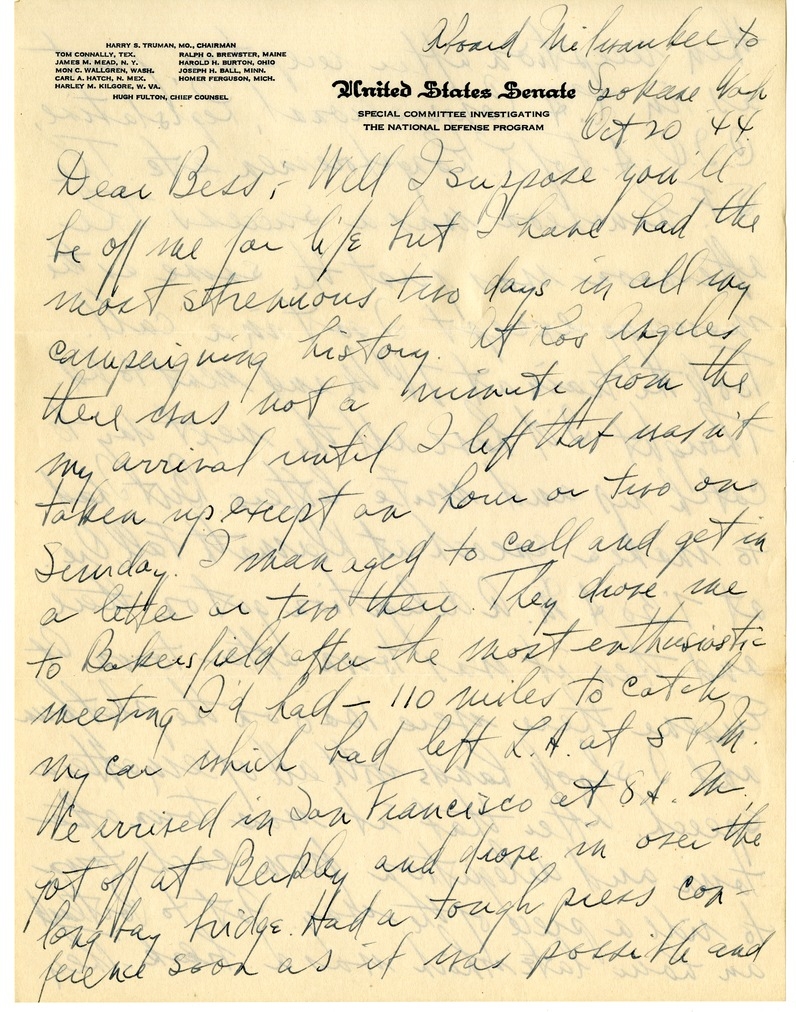 HARRY S. TRUMAN, MO., CHAIRMAN
TOM CONNALLY, TEX. RALPH O. BREWSTER, MAINE
JAMES M. MEAD, N. Y. HAROLD H. BURTON, OHIO
MON C. WALLGREN, WASH. JOSEPH H. BALL, MINN.
CARL A. HATCH, N. MEX. HOMER FERGUSON, MICH.
HARLEY M. KILGORE, W. VA.
HUGH FULTON, CHIEF COUNSEL
United States Senate
SPECIAL COMMITTEE INVESTIGATING
THE NATIONAL DEFENSE PROGRAM
Aboard Milwaukee to
Spokane Wash
Oct 20 '44.
Dear Bess;- Well I suppose you'll
be off me for life but I have had the
most strenuous two days in all my
campaigning history. At Los Angeles
there was not a minute from the
my arrival until I left that wasn't
taken up except an hour or two on
Sunday. I managed to call and get in
a letter or two there. They drove me
to Bakersfield after the most enthusiastic
meeting I'd had – 110 miles to catch
my car which had left L.A. at 5 P.M.
We arrived in San Francisco at 8 A.M.,
got off at Berkley and drove in over the
long bay bridge. Had a tough press con-
ference soon as it was possible and